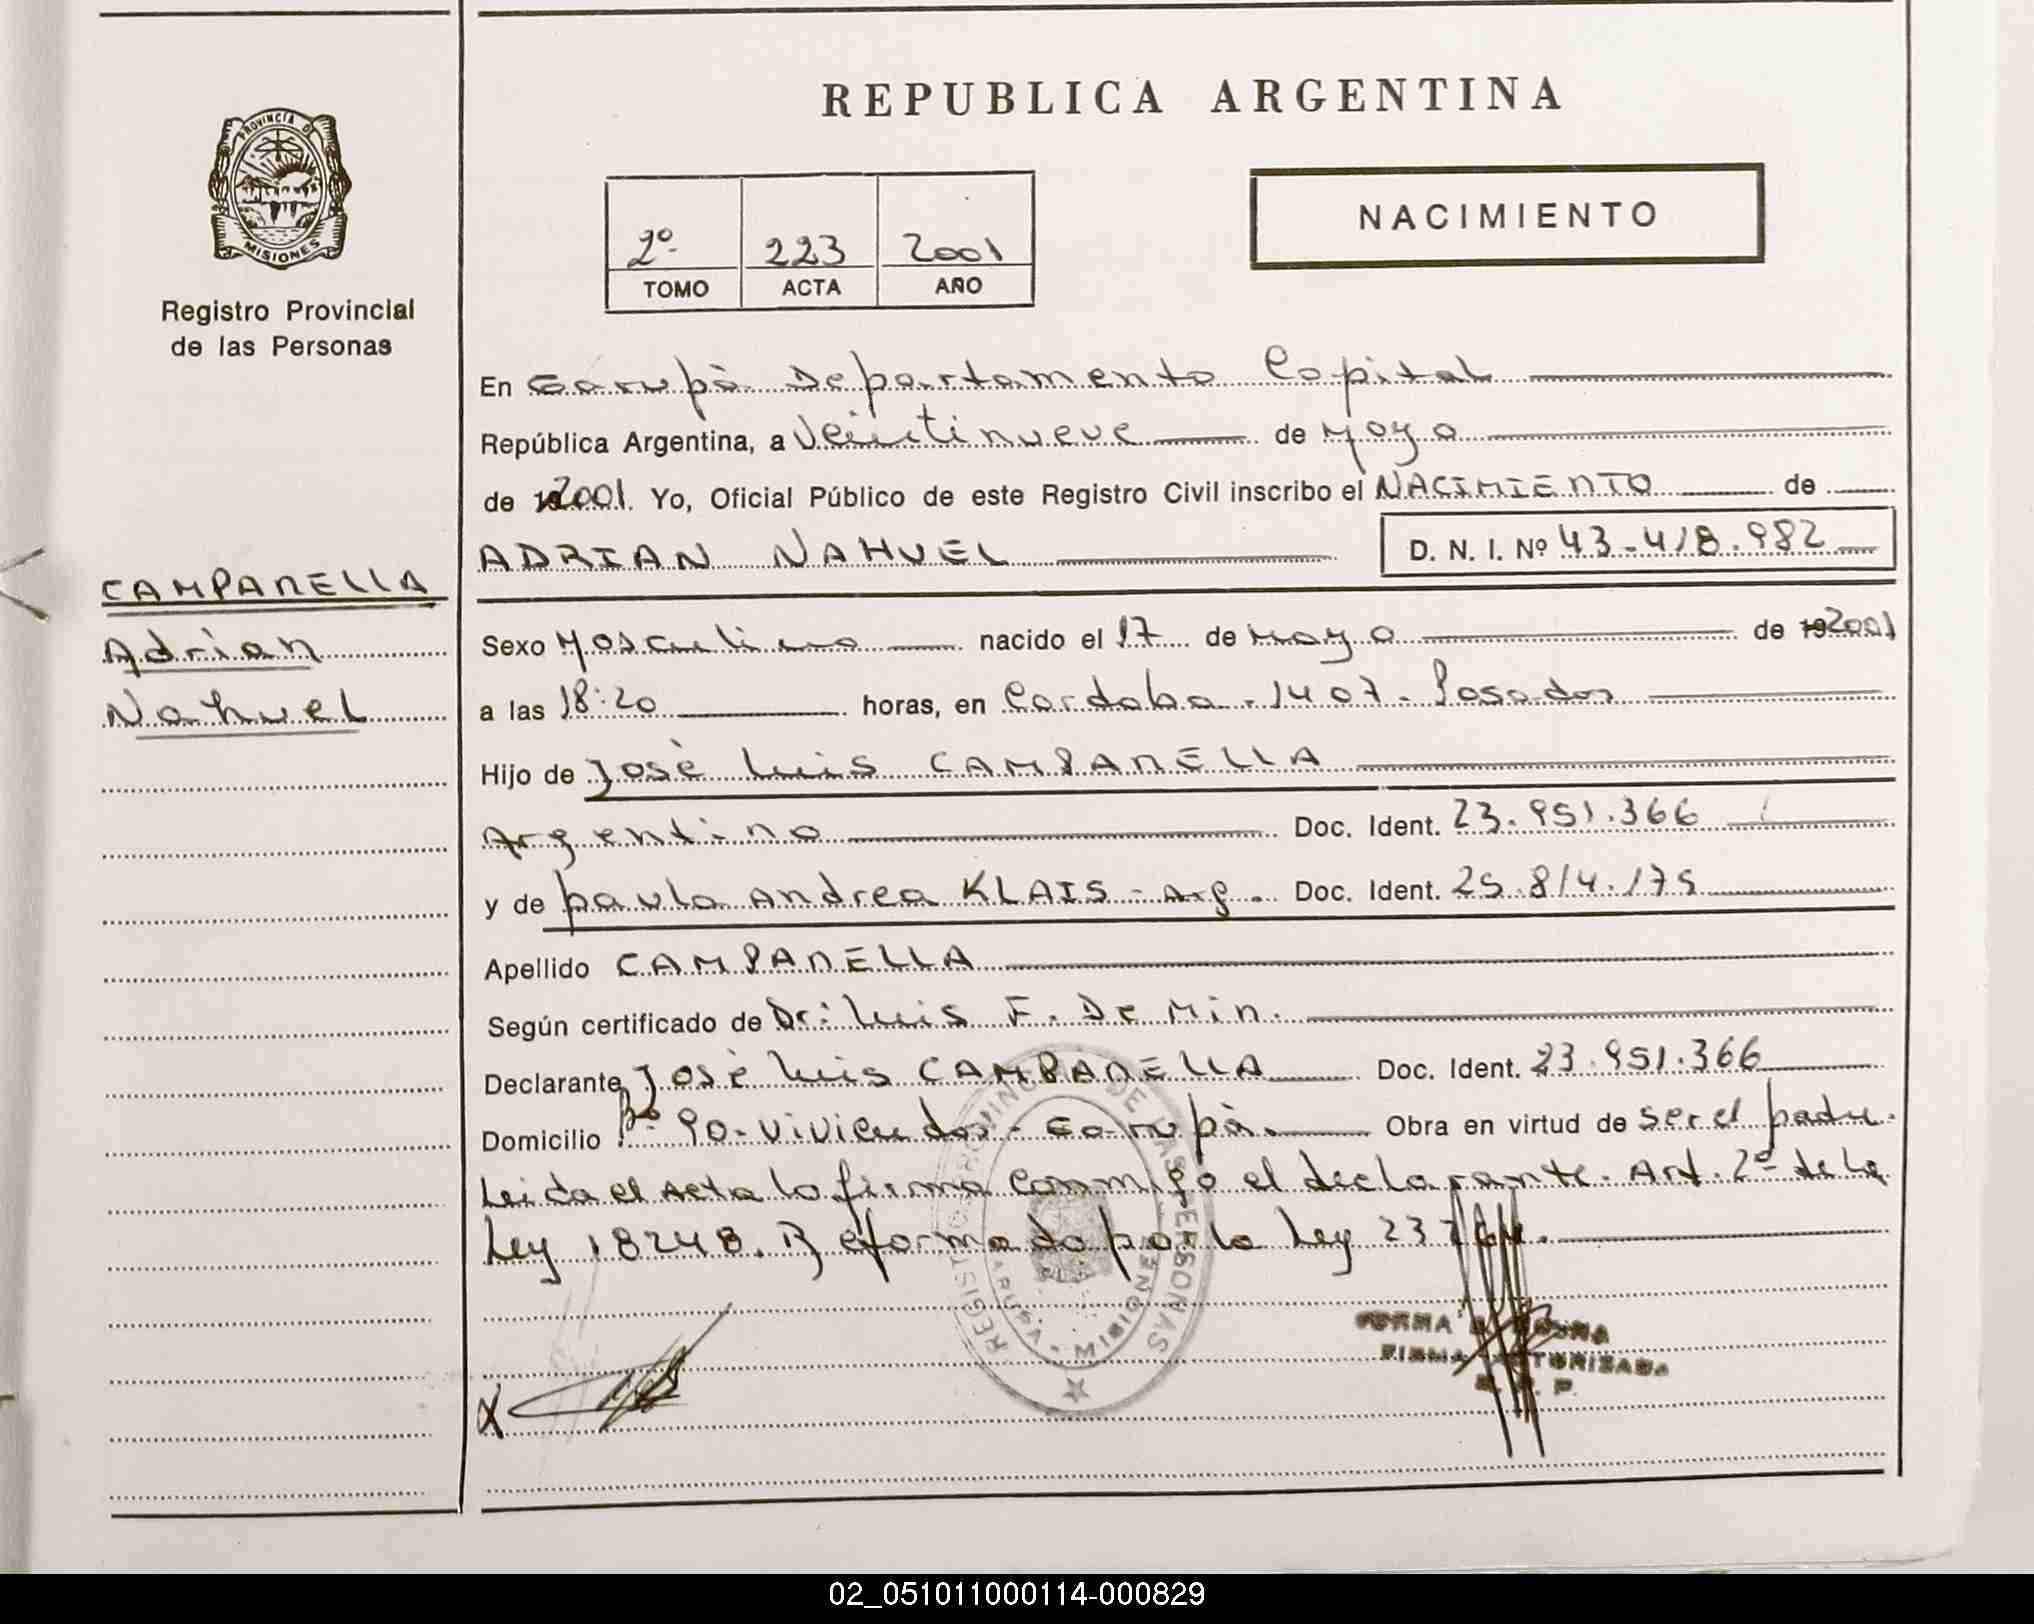 REPUBLICA ARGENTINA
PROVINCIA DE
MISIONES
Registro Provincial
de las Personas
NACIMIENTO
2º 223 2001
TOMO ACTA AÑO
En Garupà Departamento Capital
República Argentina, a Veintinueve de Mayo
de 2001. Yo, Oficial Público de este Registro Civil inscribo el NACIMIENTO de
ADRIAN NAHUEL D. N. I. Nº 43-418.982
CAMPANELLA
Adrian
Nahuel
Sexo Masculino nacido el 17 de Mayo de 192001
a las 18:20 horas, en Cordoba-1407-Posadas
Hijo de Josè Luis CAMPANELLA
Argentino Doc. Ident. 23.951.366
y de paula Andrea KLAIS-Arg. Doc. Ident. 25.814.175
Apellido CAMPANELLA
Según certificado de Dr: Luis F. De Min.
Declarante Josè Luis CAMPANELLA Doc. Ident. 23.951.366
Domicilio Bº 90-viviendas-Garupà. Obra en virtud de ser el padre.
Leida el Acta la firma conmigo el declarante. Art. 2º de la
Ley 18248. Reformado por la Ley 23264.
REGISTRO PROVINCIAL DE LAS PERSONAS
GARUPA - MISIONES
X
FIRMA AUTORIZADA
R. P. P.
02_051011000114-000829